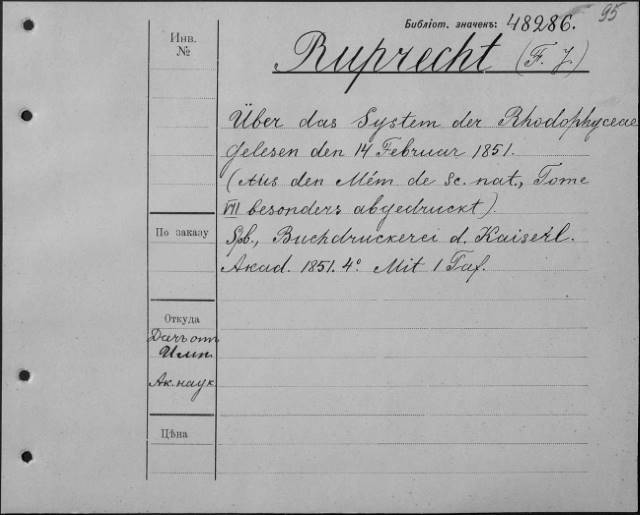 95
Библіот. значекъ: 48286.
Инв.
№
Ruprecht (F. J.)
Über das System der Rhodophyceae
gelesen den 14 Februar 1851.
(Aus den Mém de Sc. nat., Tome
VII besonders abgedruckt).
По заказу
Spb., Buchdruckerei d. Kaiserl.
Akad. 1851. 4° Mit 1 Taf.
Откуда
Даръ от
Имп.
Ак. наук
Цѣна